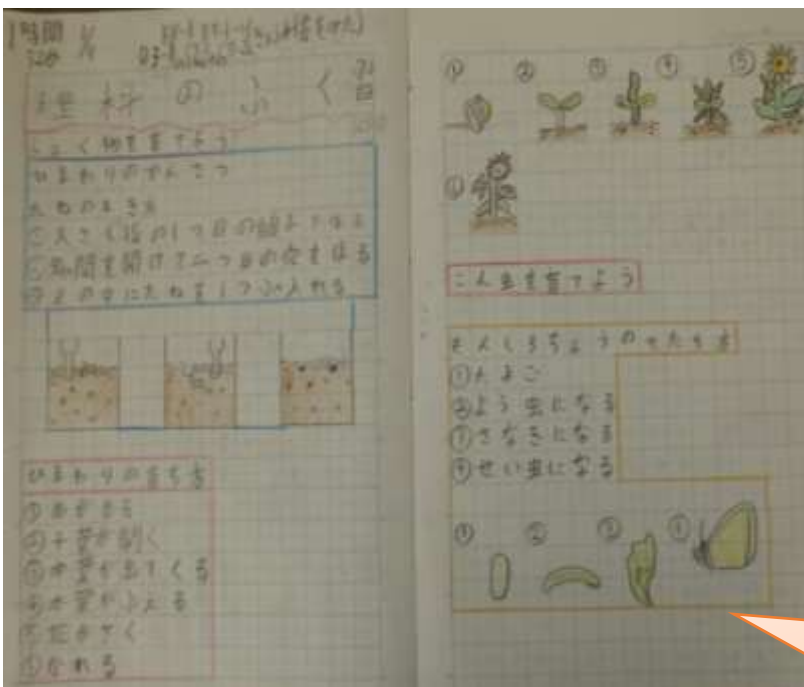 1時間
理科のふく習
しょく物を育てよう
ひまわりのかんさつ
たねのまき方
①人さし指の1つ目の
②間を開けて二つ目の穴をほる
③その中にたねを1つぶ入れる
ひまわりの育ち方
①めが出る
②子葉が開く
③本葉が出てくる
④本葉がふえる
⑤花がさく
⑥かれる
① ② ③ ④ ⑤
⑥
こん虫を育てよう
もんしろちょうのそだち方
①たまご
②よう虫になる
③さなぎになる
④せい虫になる
① ② ③ ④